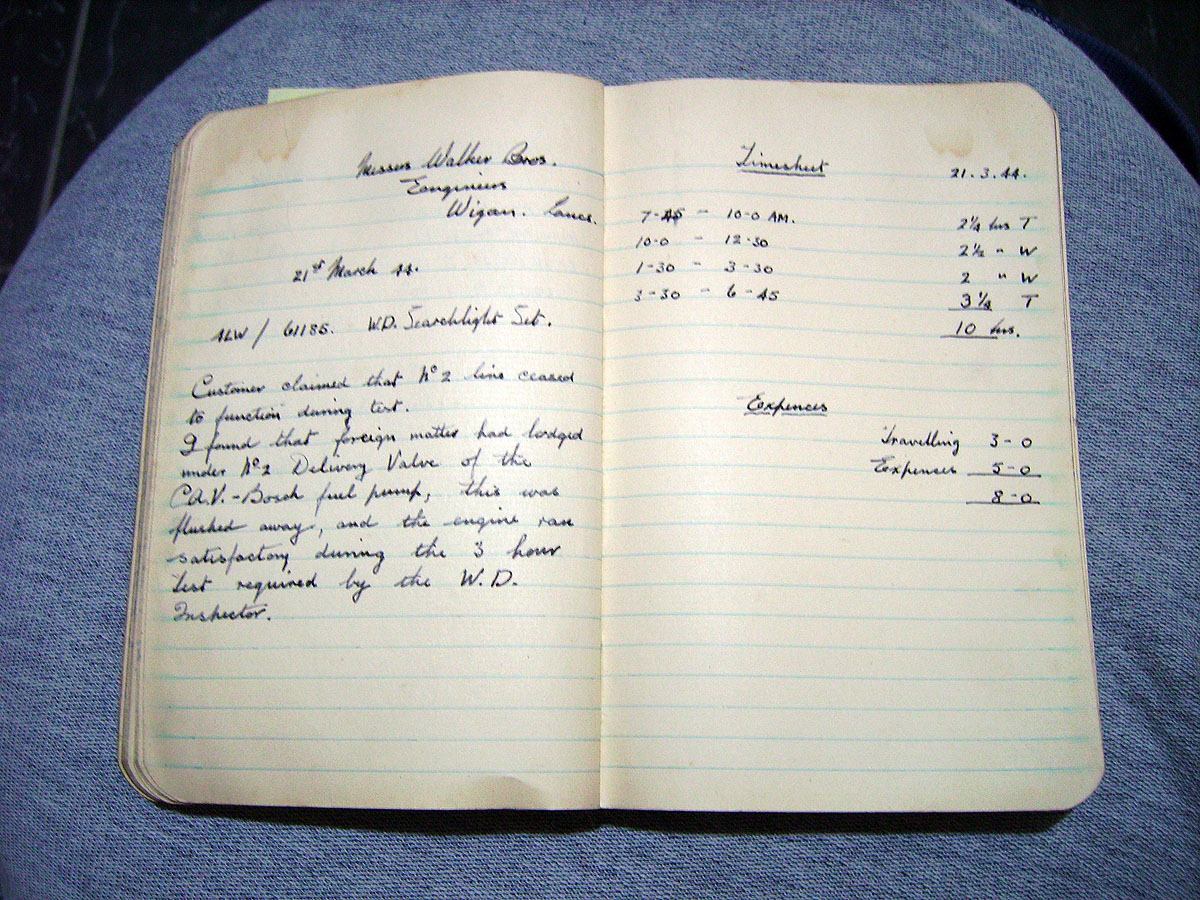 Messrs Walker Bros.
Engineers
Wigan. Lancs.
21st March 44.
4LW / 61185. W.D. Searchlight Set.
Customer claimed that No 2 line ceased
to function during test.
I found that foreign matter had lodged
under No 2 Delivery Valve of the
C.A.V.-Bosch fuel pump, this was
flushed away, and the engine ran
satisfactory during the 3 hour
test required by the W.D.
Inspector.
Timesheet 21.3.44.
7-45 - 10-0 AM. 2¼ hrs T
10-0 - 12-30 2½ " W
1-30 - 3-30 2 " W
3-30 - 6-45 3¼ T
10 hrs.
Expences
Travelling 3-0
Expences 5-0
8-0